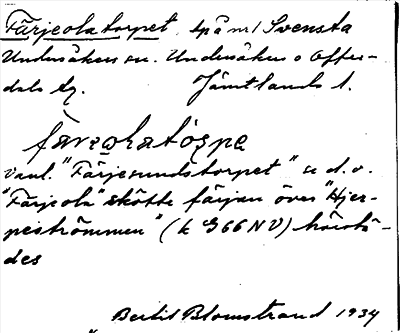 Färjeolatorpet tp å nr 1 Svensta
Undersåkers sn. Undersåkers o Offer-
dals tg. Jämtlands l.
färjeolatorpe
vanl. "Färjesundstorpet" se d. o.
"Färjeola" skötte färjan över "Hjer-
peströmmen" (k 366 NV) härstä-
des
Bertil Blomstrand 1934